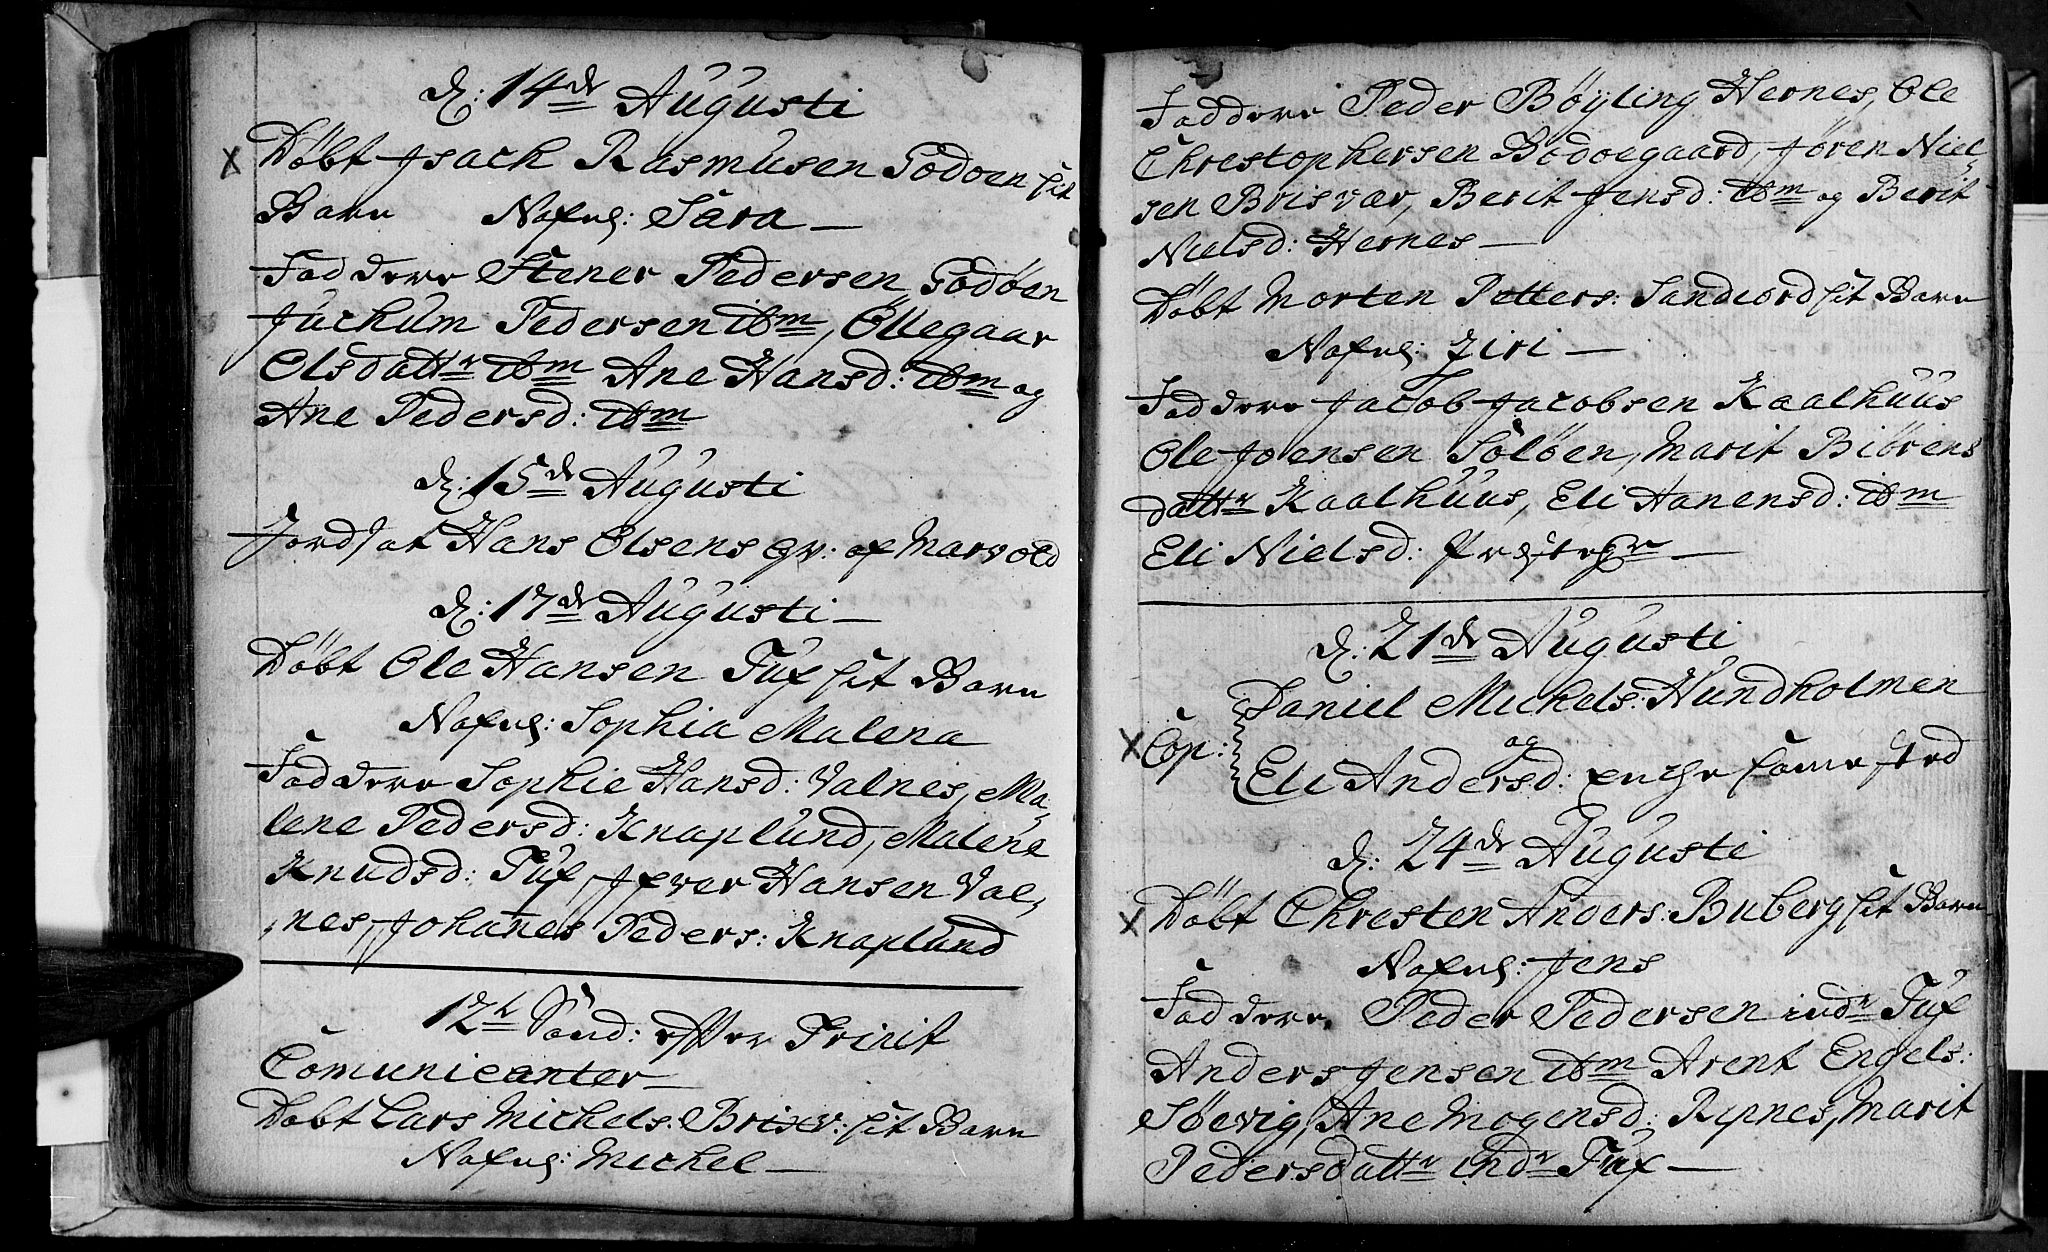 d: 14de Augusti
X Döbt Jsach Rasmusen Godoen sit
Barn Nafnl: Sara —
Faddere Stener Pedersen Godöen
Juchum Pedersen ibm, Öllegaar
Olsdattr ibm Ane Hansd: ibm og
Ane Pedersd: ibm
d: 15de Augusti
Jordsat Hans Olsens qv: af Marvold
d: 17de Augusti —
Döbt Ole Hansen Tuf sit Barn
Nafnl: Sophia Malena
Faddere Sophie Hansd: Valnes, Ma-
lene Pedersd: Knaplund, Malene
Knudsd: Tuf, Jfver Hansen Val-
nes, Johannes Peders: Knaplund
12te Sönd: effter Trinit
Comunicanter —
Döbt Lars Michels: Brisv: sit Barn
Nafnl: Michel —
Faddere Peder Böyling Hernes, Ole
Chrestophersen Bodoegaard, Jören Niel-
sen Brisvær, Berit Jensd: ibm og Berit
Nielsd: Hernes —
Döbt Morten Petters: Sandiord sit Barn
Nafnl: Ziri —
Faddere Jacob Jacobsen Kaalhuus
Ole Joensen Solöen, Marit Biörens
dattr Kaalhuus, Eli Hanensd: ibm
Eli Nielsd: —
d: 21de Augusti
Daniel Michels: Hundholmen
X Cop: og
Eli Andersd: Enche same sted
d: 24de Augusti
X Döbt Chresten Anders: Buberg sit Barn
Nafnl: Jens
Faddere Peder Pedersen indr Tuf
Anders Jensen ibm Arent Engels:
Söevig, Ane Mogensd: Repnes, Marit
Pedersdattr indr Tuf —